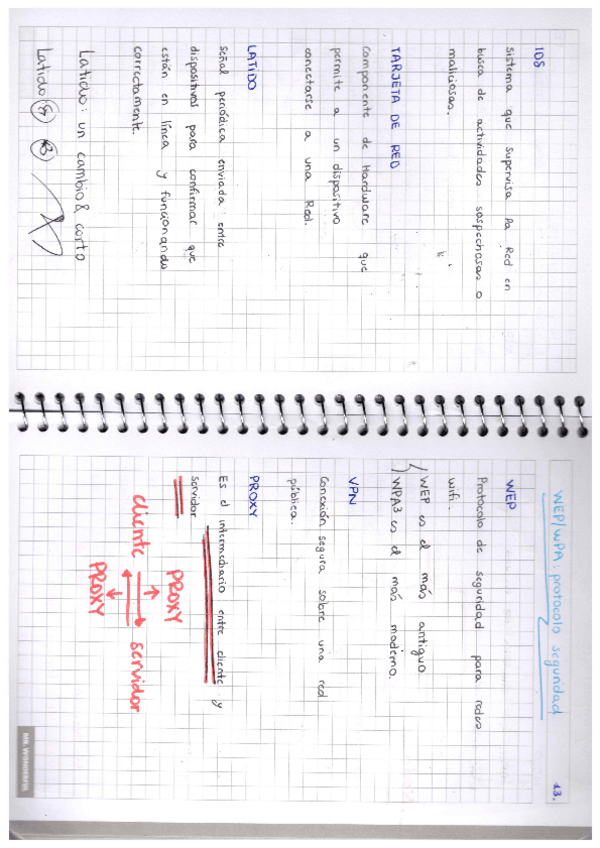 IDS
Sistema que supervisa la Red en
busca de actividades sospechosas o
maliciosas.
TARJETA DE RED
Componente de Hardware que
permite a un dispositivo
conectarse a una Red.
LATIDO
Señal periódica enviada entre
dispositivos para confirmar que
están en línea y funcionando
correctamente.
Latido: un cambio& corto
Latido
WEP/WPA: protocolo seguridad
13.
WEP
Protocolo de seguridad para redes
wifi.
WEP es el más antiguo
WPA3 es el más moderno.
VPN
Conexión segura sobre una red
pública.
PROXY
Es el intermediario entre cliente y
servidor
PROXY
cliente servidor
PROXY
MR. WONDERFUL